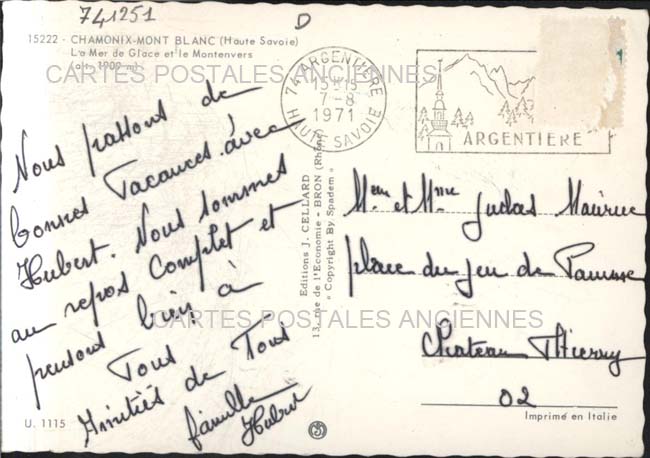 741251
D
15222 - CHAMONIX-MONT BLANC (Haute Savoie)
La Mer de Glace et le Montenvers
(alt. 1909 m)
CARTES POSTALES ANCIENNES
74 ARGENTIERE
15-15
7-8
1971
HAUTE SAVOIE
ARGENTIERE
Nous passons de
bonnes Vacances avec
Hubert. Nous sommes
au repos Complet et
pensons bien à
Tous
Amitiés de Tous
famille
Hubert
Editions J. CELLARD
13, rue de l'Economie - BRON (Rhône)
« Copyright By Spadem »
Mr et Mme Judas Maurice
place du jeu de Paume
Chateau Thierry
02
CARTES POSTALES ANCIENNES
U. 1115
Imprimé en Italie